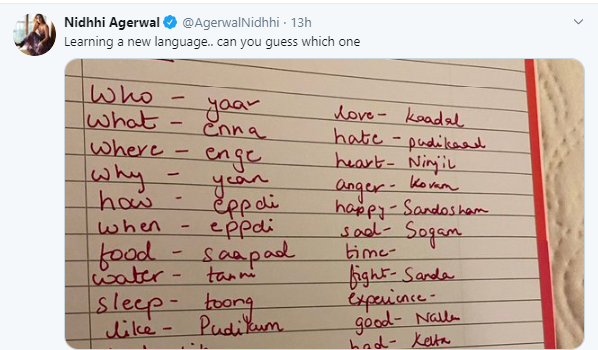 Nidhhi Agerwal @AgerwalNidhhi · 13h
Learning a new language.. can you guess which one
who - yaar
what - enna
where - enge
why - yean
how - eppdi
when - eppdi
food - saapad
water - tanni
sleep - toong
like - Pudikum
love - kaadal
hate - pudikaad
heart - Ninjil
anger - Kovam
happy - Sandosham
sad - Sogam
time -
fight - Sanda
experience -
good - Nalla
bad - Ketta